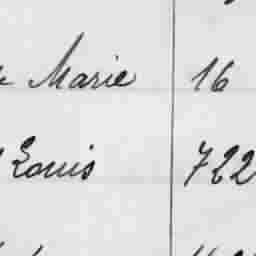 Marie 16
Louis 722